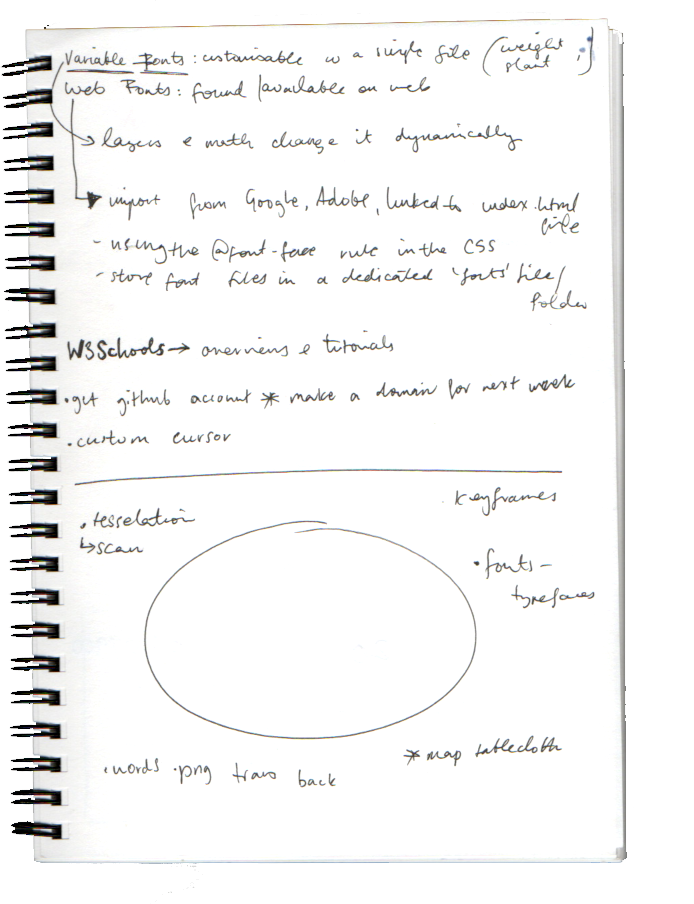 Variable Fonts : customisable w a single file (weight
slant ;)
Web Fonts : found / available on web
layers & math change it dynamically
import from Google, Adobe, linked to index.html
file
- using the @font-face rule in the CSS
- store font files in a dedicated 'fonts' file/
folder
W3Schools → overviews & tutorials
• get github account * make a domain for next week
• custom cursor
Keyframes
• tesselation
↳ scan
• fonts -
typefaces
* map tablecloth
• words .png trans back